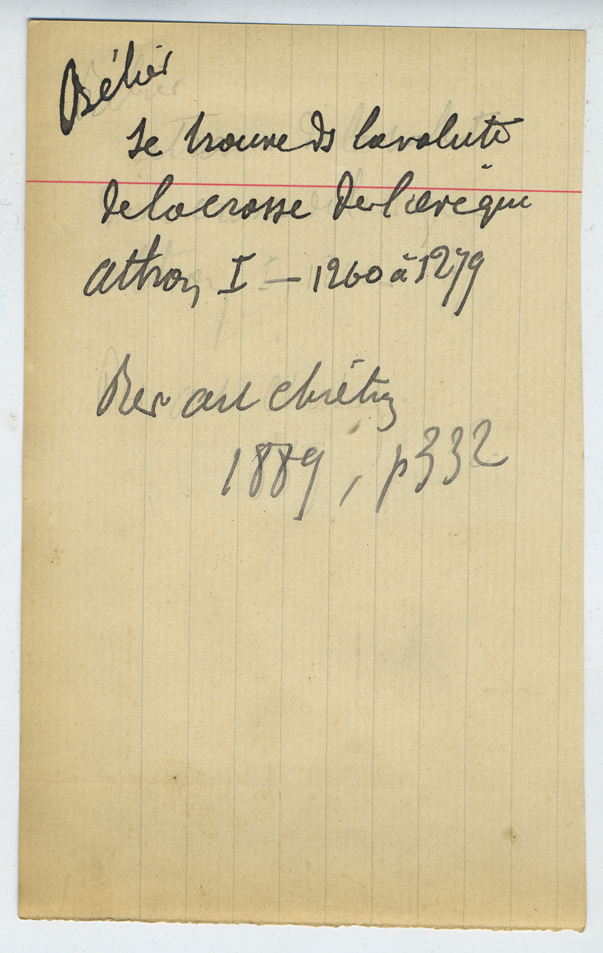 Bélier
se trouve ds la volute
de la crosse de l'évêque
Athon, I — 1260 à 1279
Rev art chrétien
1889, p 332